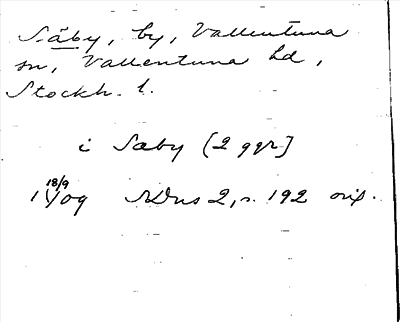 Säby, by, Vallentuna
sn, Vallentuna hd,
Stockh. l.
i Saby [2 ggr]
18/9
1409 SDns 2, s. 192 orig.